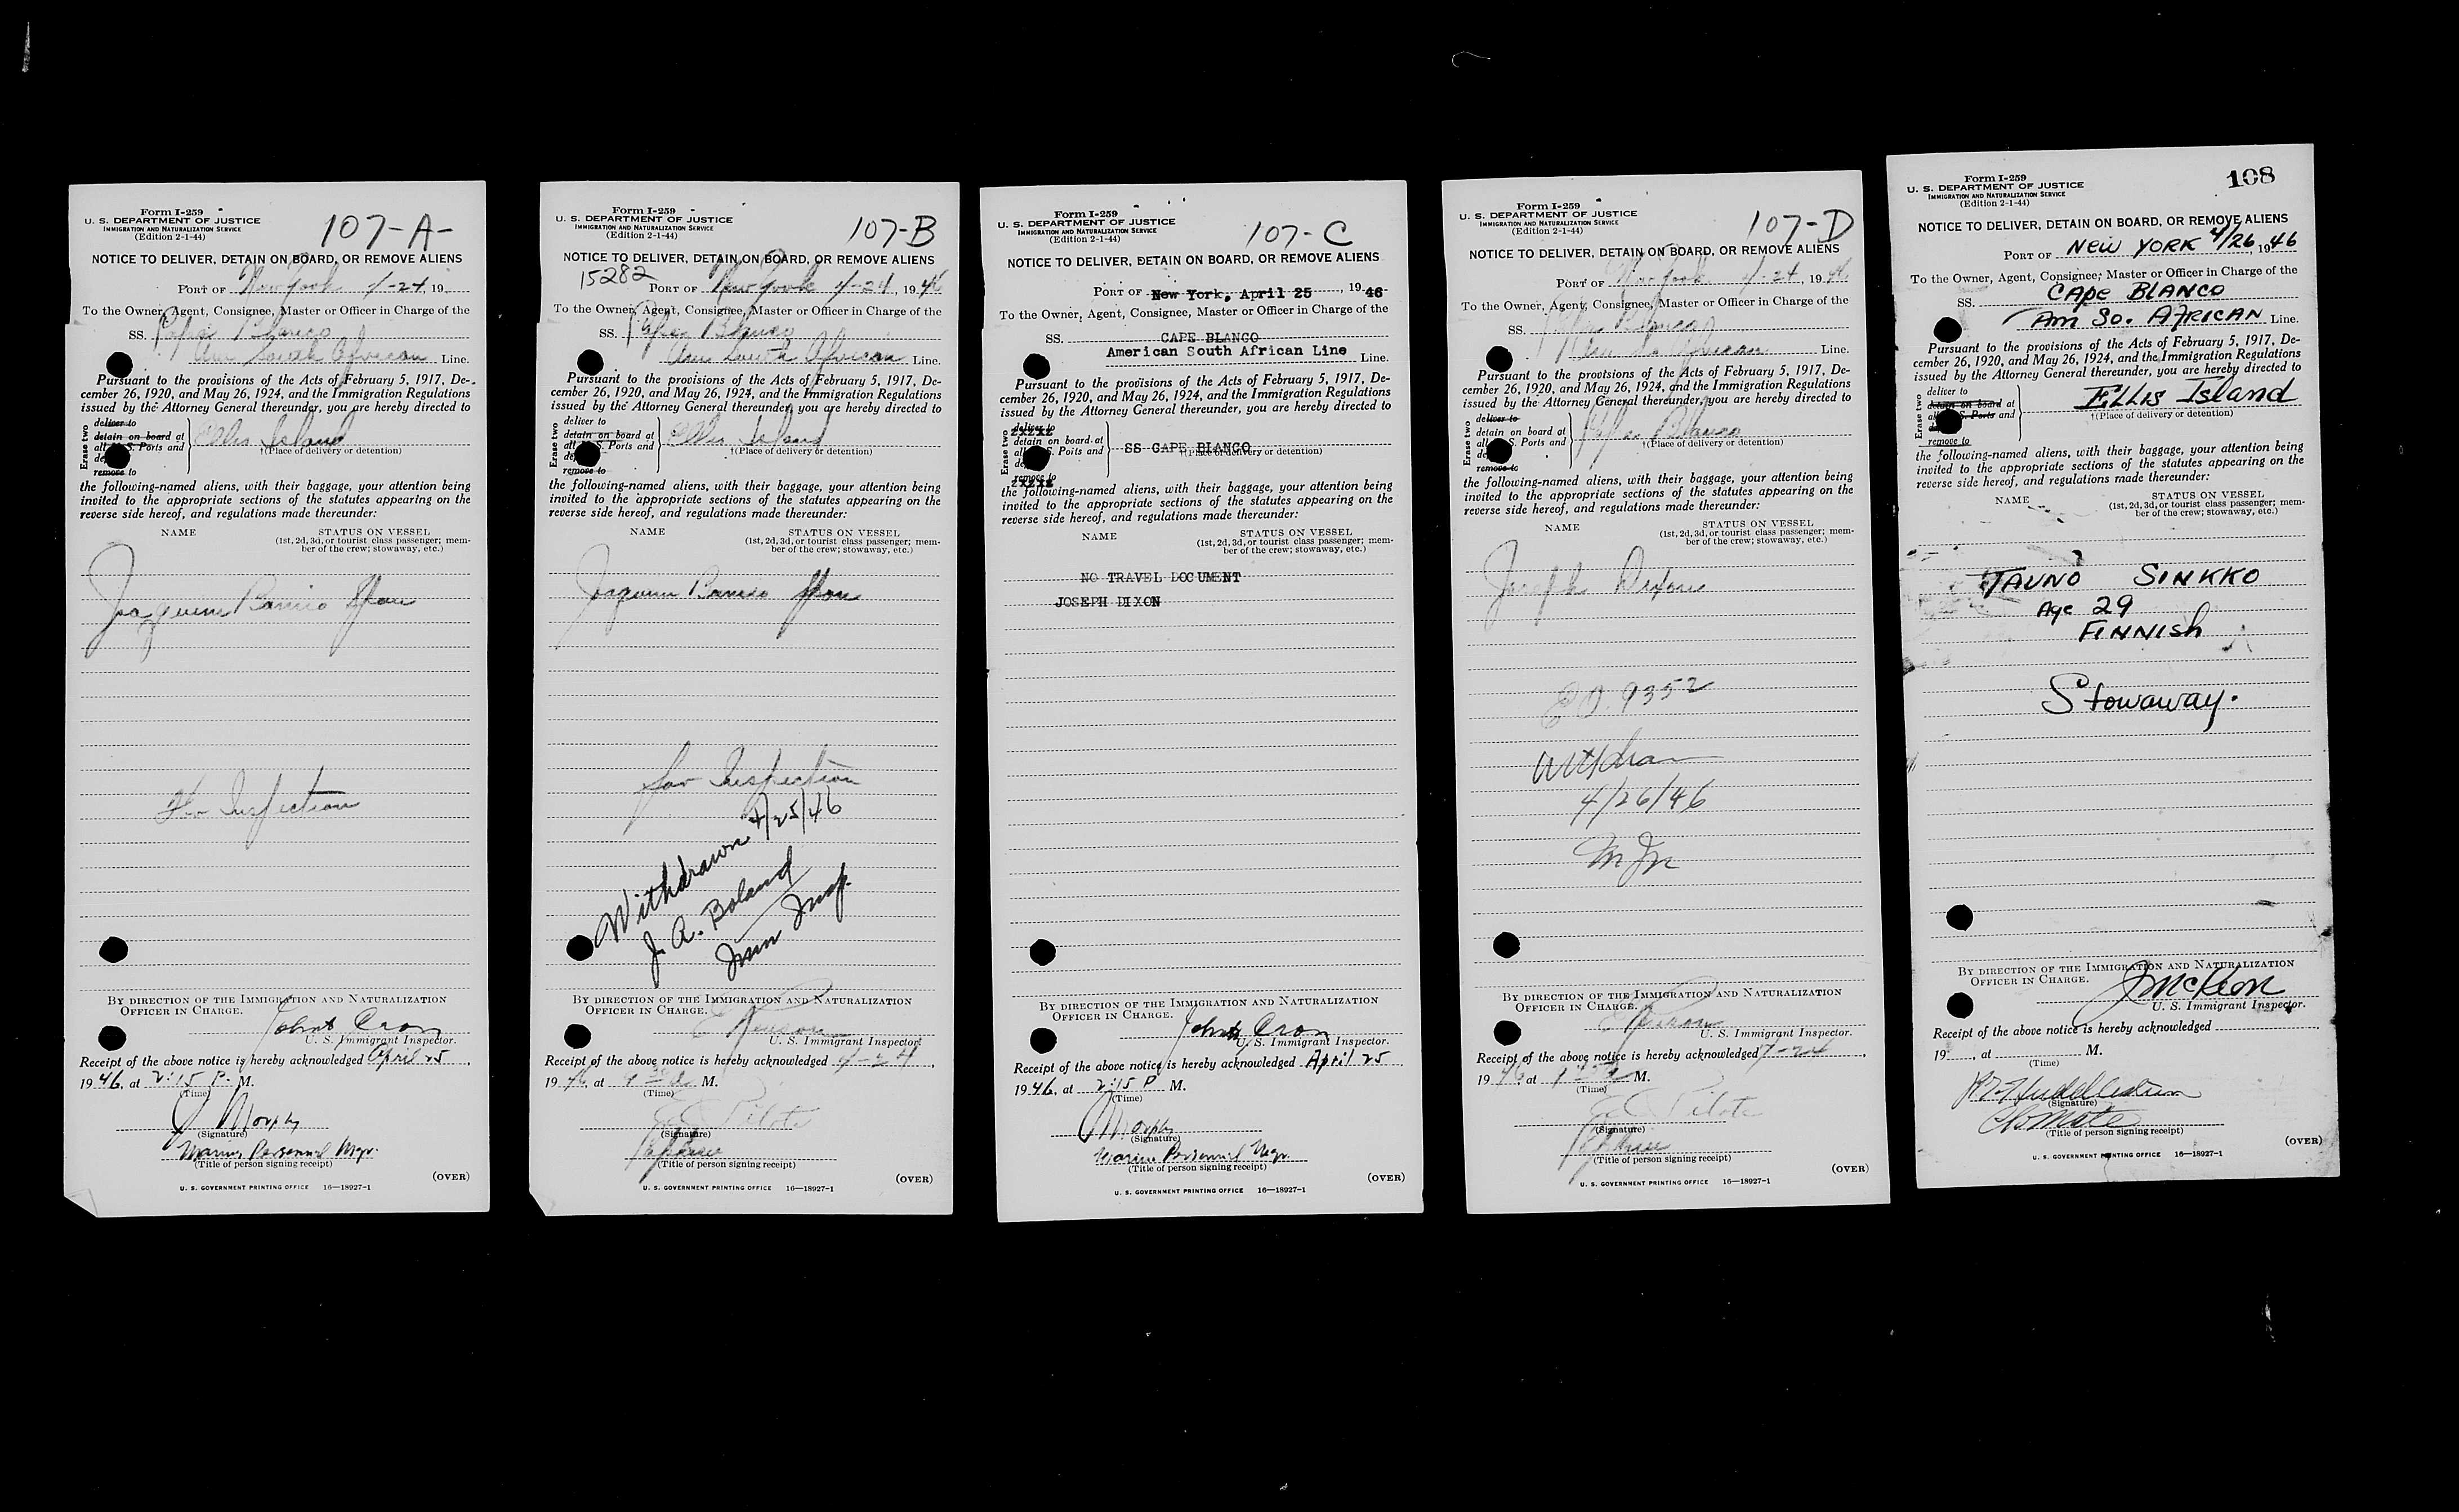 Form I-259
U. S. DEPARTMENT OF JUSTICE
IMMIGRATION AND NATURALIZATION SERVICE
(Edition 2-1-44)
107-A-
NOTICE TO DELIVER, DETAIN ON BOARD, OR REMOVE ALIENS
PORT OF New York 4-24, 19
To the Owner, Agent, Consignee, Master or Officer in Charge of the
SS. Cape Blanco
Am South African Line.
Pursuant to the provisions of the Acts of February 5, 1917, De-
cember 26, 1920, and May 26, 1924, and the Immigration Regulations
issued by the Attorney General thereunder, you are hereby directed to
Erase two
deliver to
detain on board at
all U. S. Ports and
remove to
Ellis Island
†(Place of delivery or detention)
the following-named aliens, with their baggage, your attention being
invited to the appropriate sections of the statutes appearing on the
reverse side hereof, and regulations made thereunder:
NAME STATUS ON VESSEL
(1st, 2d, 3d, or tourist class passenger; mem-
ber of the crew; stowaway, etc.)
Joaquim
For Inspection
BY DIRECTION OF THE IMMIGRATION AND NATURALIZATION
OFFICER IN CHARGE.
John Cron
U. S. Immigrant Inspector.
Receipt of the above notice is hereby acknowledged April 25,
1946, at 2:15 P. M.
(Time)
J Morphy
(Signature)
Marine Personnel Mgr.
(Title of person signing receipt)
(OVER)
U. S. GOVERNMENT PRINTING OFFICE 16—18927-1
Form I-259
U. S. DEPARTMENT OF JUSTICE
IMMIGRATION AND NATURALIZATION SERVICE
(Edition 2-1-44)
107-B
NOTICE TO DELIVER, DETAIN ON BOARD, OR REMOVE ALIENS
15282
PORT OF New York 4-24, 1946
To the Owner, Agent, Consignee, Master or Officer in Charge of the
SS. Cape Blanco
Am South African Line.
Pursuant to the provisions of the Acts of February 5, 1917, De-
cember 26, 1920, and May 26, 1924, and the Immigration Regulations
issued by the Attorney General thereunder, you are hereby directed to
Erase two
deliver to
detain on board at
all U. S. Ports and
remove to
Ellis Island
†(Place of delivery or detention)
the following-named aliens, with their baggage, your attention being
invited to the appropriate sections of the statutes appearing on the
reverse side hereof, and regulations made thereunder:
NAME STATUS ON VESSEL
(1st, 2d, 3d, or tourist class passenger; mem-
ber of the crew; stowaway, etc.)
Joaquim
for Inspection
Withdrawn 4/25/46
J. A. Boland
Imm Insp.
BY DIRECTION OF THE IMMIGRATION AND NATURALIZATION
OFFICER IN CHARGE.
U. S. Immigrant Inspector
Receipt of the above notice is hereby acknowledged 4-24,
1946, at M.
(Time)
(Signature)
(Title of person signing receipt)
(OVER)
U. S. GOVERNMENT PRINTING OFFICE 16—18927-1
Form I-259
U. S. DEPARTMENT OF JUSTICE
IMMIGRATION AND NATURALIZATION SERVICE
(Edition 2-1-44)
107-C
NOTICE TO DELIVER, DETAIN ON BOARD, OR REMOVE ALIENS
PORT OF New York, April 25, 1946
To the Owner, Agent, Consignee, Master or Officer in Charge of the
SS. CAPE BLANCO
American South African Line Line.
Pursuant to the provisions of the Acts of February 5, 1917, De-
cember 26, 1920, and May 26, 1924, and the Immigration Regulations
issued by the Attorney General thereunder, you are hereby directed to
Erase two
deliver to
detain on board at
all U. S. Ports and
remove to
SS CAPE BLANCO
†(Place of delivery or detention)
the following-named aliens, with their baggage, your attention being
invited to the appropriate sections of the statutes appearing on the
reverse side hereof, and regulations made thereunder:
NAME STATUS ON VESSEL
(1st, 2d, 3d, or tourist class passenger; mem-
ber of the crew; stowaway, etc.)
NO TRAVEL DOCUMENT
JOSEPH DIXON
BY DIRECTION OF THE IMMIGRATION AND NATURALIZATION
OFFICER IN CHARGE.
John Cron
U. S. Immigrant Inspector.
Receipt of the above notice is hereby acknowledged April 25
1946, at 2:15 P M.
(Time)
J Morphy
(Signature)
Marine Personnel Mgr.
(Title of person signing receipt)
(OVER)
U. S. GOVERNMENT PRINTING OFFICE 16—18927-1
Form I-259
U. S. DEPARTMENT OF JUSTICE
IMMIGRATION AND NATURALIZATION SERVICE
(Edition 2-1-44)
107-D
NOTICE TO DELIVER, DETAIN ON BOARD, OR REMOVE ALIENS
PORT OF New York 4-24, 1946
To the Owner, Agent, Consignee, Master or Officer in Charge of the
SS. Cape Blanco
Am So African Line.
Pursuant to the provisions of the Acts of February 5, 1917, De-
cember 26, 1920, and May 26, 1924, and the Immigration Regulations
issued by the Attorney General thereunder, you are hereby directed to
Erase two
deliver to
detain on board at
all U. S. Ports and
remove to
Cape Blanco
†(Place of delivery or detention)
the following-named aliens, with their baggage, your attention being
invited to the appropriate sections of the statutes appearing on the
reverse side hereof, and regulations made thereunder:
NAME STATUS ON VESSEL
(1st, 2d, 3d, or tourist class passenger; mem-
ber of the crew; stowaway, etc.)
Joseph Dixon
EO. 9352
Withdrawn
4/26/46
BY DIRECTION OF THE IMMIGRATION AND NATURALIZATION
OFFICER IN CHARGE.
U. S. Immigrant Inspector.
Receipt of the above notice is hereby acknowledged 4-24,
1946 at M.
(Time)
(Signature)
(Title of person signing receipt)
(OVER)
U. S. GOVERNMENT PRINTING OFFICE 16—18927-1
Form I-259
U. S. DEPARTMENT OF JUSTICE
IMMIGRATION AND NATURALIZATION SERVICE
(Edition 2-1-44)
108
NOTICE TO DELIVER, DETAIN ON BOARD, OR REMOVE ALIENS
PORT OF NEW YORK 4/26, 1946
To the Owner, Agent, Consignee, Master or Officer in Charge of the
SS. CAPE BLANCO
AM SO. AFRICAN Line.
Pursuant to the provisions of the Acts of February 5, 1917, De-
cember 26, 1920, and May 26, 1924, and the Immigration Regulations
issued by the Attorney General thereunder, you are hereby directed to
Erase two
deliver to
detain on board at
all U. S. Ports and
remove to
ELLIS Island
†(Place of delivery or detention)
the following-named aliens, with their baggage, your attention being
invited to the appropriate sections of the statutes appearing on the
reverse side hereof, and regulations made thereunder:
NAME STATUS ON VESSEL
(1st, 2d, 3d, or tourist class passenger; mem-
ber of the crew; stowaway, etc.)
TAUNO SINKKO
Age 29
FINNISH
Stowaway.
BY DIRECTION OF THE IMMIGRATION AND NATURALIZATION
OFFICER IN CHARGE.
J McKeon
U. S. Immigrant Inspector.
Receipt of the above notice is hereby acknowledged
19, at M.
(Time)
(Signature)
Ch Mate
(Title of person signing receipt)
(OVER)
U. S. GOVERNMENT PRINTING OFFICE 16—18927-1